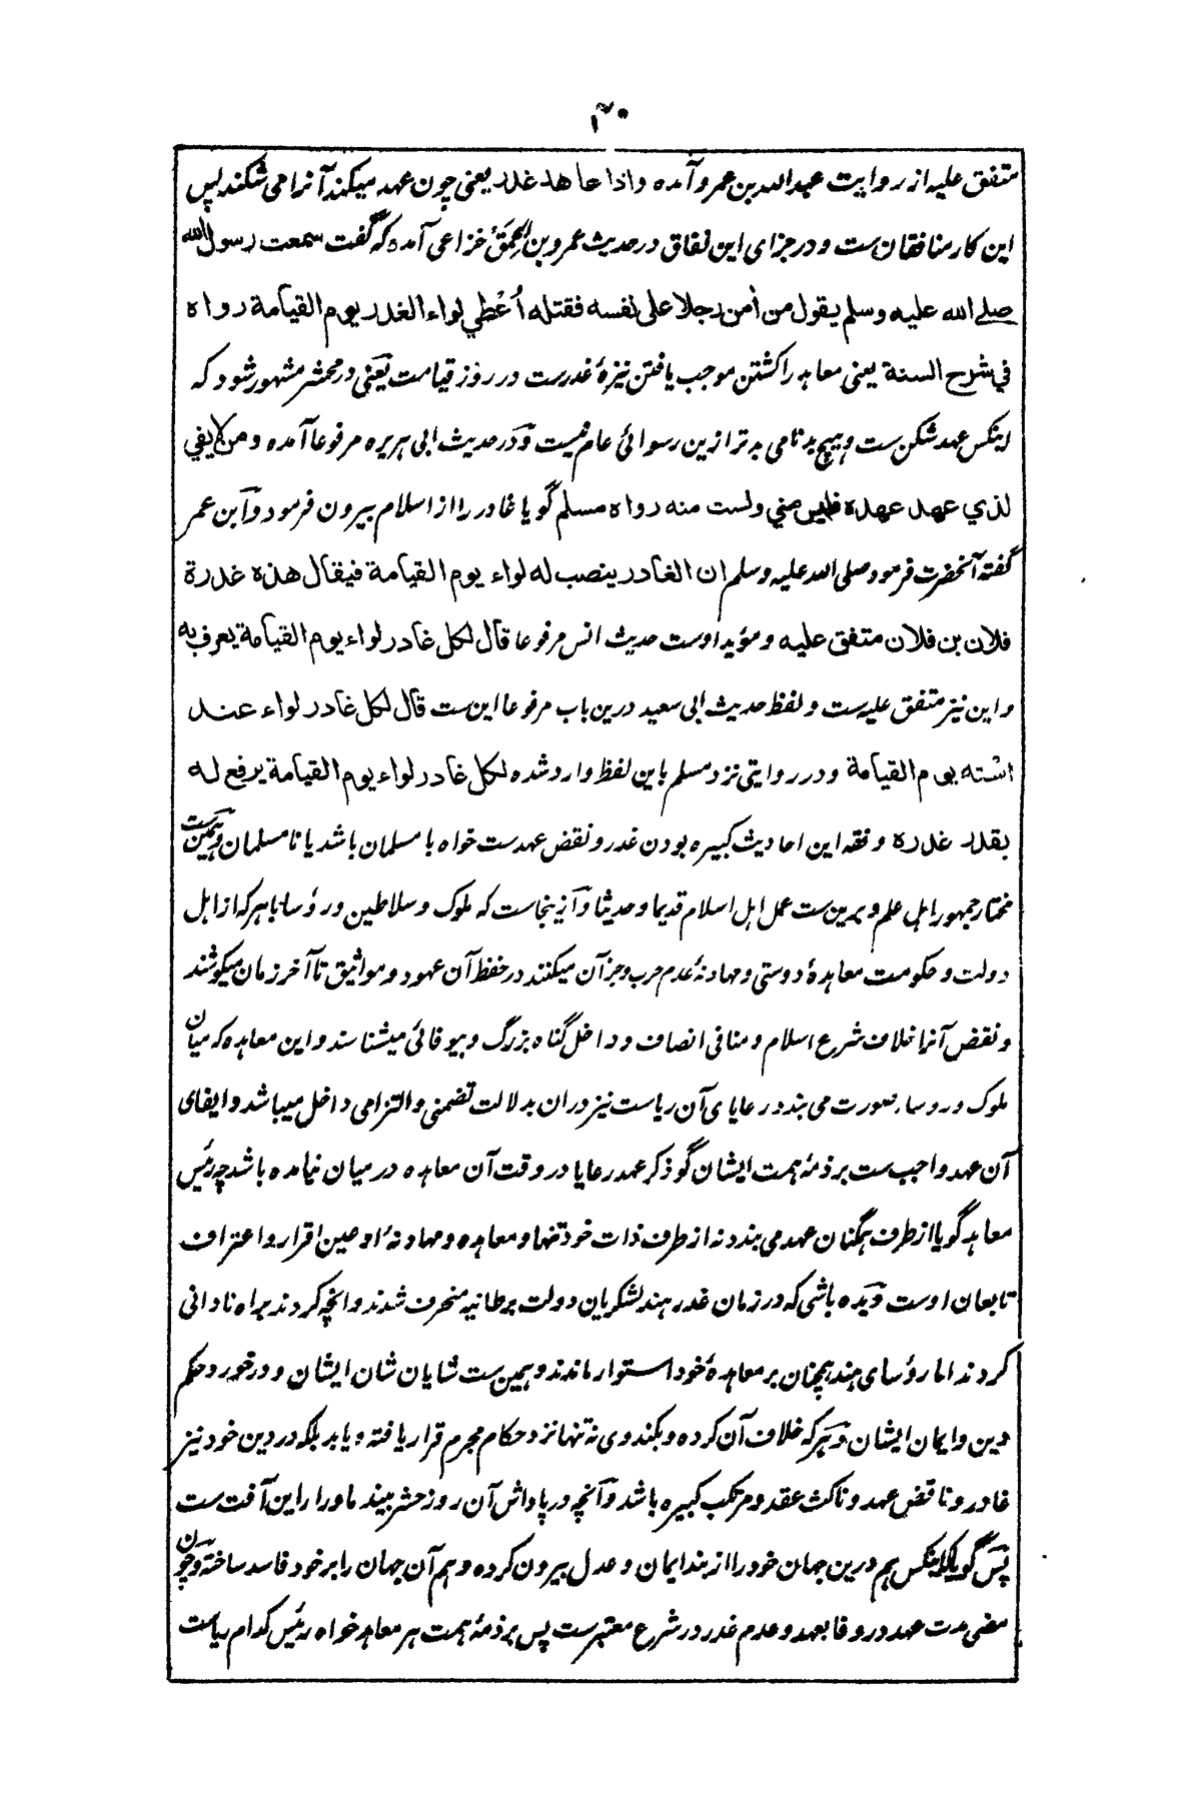 ۱۴۰
متفق علیه از روایت عبدالله بن عمرو آمده واذا عاهد غدر یعنی چون عهد میکند آنرا می شکند پس
این کار منافقان ست و در جزای این نفاق در حدیث عمرو بن الحَمِق خزاعی آمده که گفت سمعت رسول الله
صلے الله علیه وسلم یقول من أمن رجلا علی نفسه فقتله اُعْطي لواء الغدر یوم القیامة رواه
في شرح السنة یعنی معاهد را کشتن موجب یافتن نیزهٔ غدرست در روز قیامت یعنی در محشر مشهور شود که
اینکس عهد شکن ست و هیچ بدنامی بدتر ازین رسوائی عام نیست و در حدیث ابی هریره مرفوعا آمده و من لا یفي
لذي عهد عهده فلیس مني ولست منه رواه مسلم گویا غادر را از اسلام بیرون فرمود و ابن عمر
گفته آنحضرت فرمود صلی الله علیه وسلم ان الغادر ینصب له لواء یوم القیامة فیقال هذه غدرة
فلان بن فلان متفق علیه و مؤید اوست حدیث انس مرفوعا قال لکل غادر لواء یوم القیامة یعرف به
و این نیز متفق علیه ست و لفظ حدیث ابی سعید درین باب مرفوعا این ست قال لکل غادر لواء عند
استه یوم القیامة و در روایتی نزد مسلم باین لفظ وارد شده لکل غادر لواء یوم القیامة یرفع له
بقدر غدره و فقه این احادیث کبیره بودن غدر و نقض عهدست خواه با مسلمان باشد یا نامسلمان و همین ست
مختار جمهور اهل علم و برین ست عمل اهل اسلام قدیما و حدیثا و ازینجاست که ملوک و سلاطین و رؤسا با هر که از اهل
دولت و حکومت معاهدهٔ دوستی و مهادنهٔ عدم حرب و جز آن میکنند در حفظ آن عهود و مواثیق تا آخر زمان میکوشند
و نقض آنرا خلاف شرع اسلام و منافی انصاف و داخل گناه بزرگ و بیوفائی میشناسند و این معاهده که میان
ملوک و روسا صورت می بندد رعایای آن ریاست نیز دران بدلالت تضمنی و التزامی داخل میباشد و ایفای
آن عهد واجب ست بر ذمهٔ همت ایشان گو ذکر عهد رعایا در وقت آن معاهده درمیان نیامده باشد چه رئیس
معاهد گویا از طرف همگنان عهد می بندد نه از طرف ذات خود تنها و معاهده و مهادنهٔ او عین اقرار و اعتراف
تابعان اوست و دیده باشی که در زمان غدر هند لشکریان دولت برطانیه منحرف شدند و انچه کردند براه نادانی
کردند اما رؤسای هند همچنان بر معاهدهٔ خود استوار ماندند و همین ست شایان شان ایشان و درخورد حکم
دین و ایمان ایشان و هر که خلاف آن کرده و بکند وی نه تنها نزد حکام مجرم قرار یافته و یابد بلکه در دین خود نیز
غادر و ناقض عهد و ناکث عقد و مرتکب کبیره باشد و آنچه در پاداش آن روز حشر بیند ماورا این آفت ست
پس گویا اینکس هم درین جهان خود را از بند ایمان و عدل بیرون کرده و هم آن جهان را بر خود فاسد ساخته و چون
مضی مدت عهد در وفا بعهد و عدم غدر در شرع معتبرست پس بر ذمهٔ همت هر معاهد خواه رئیس کدام ریاست